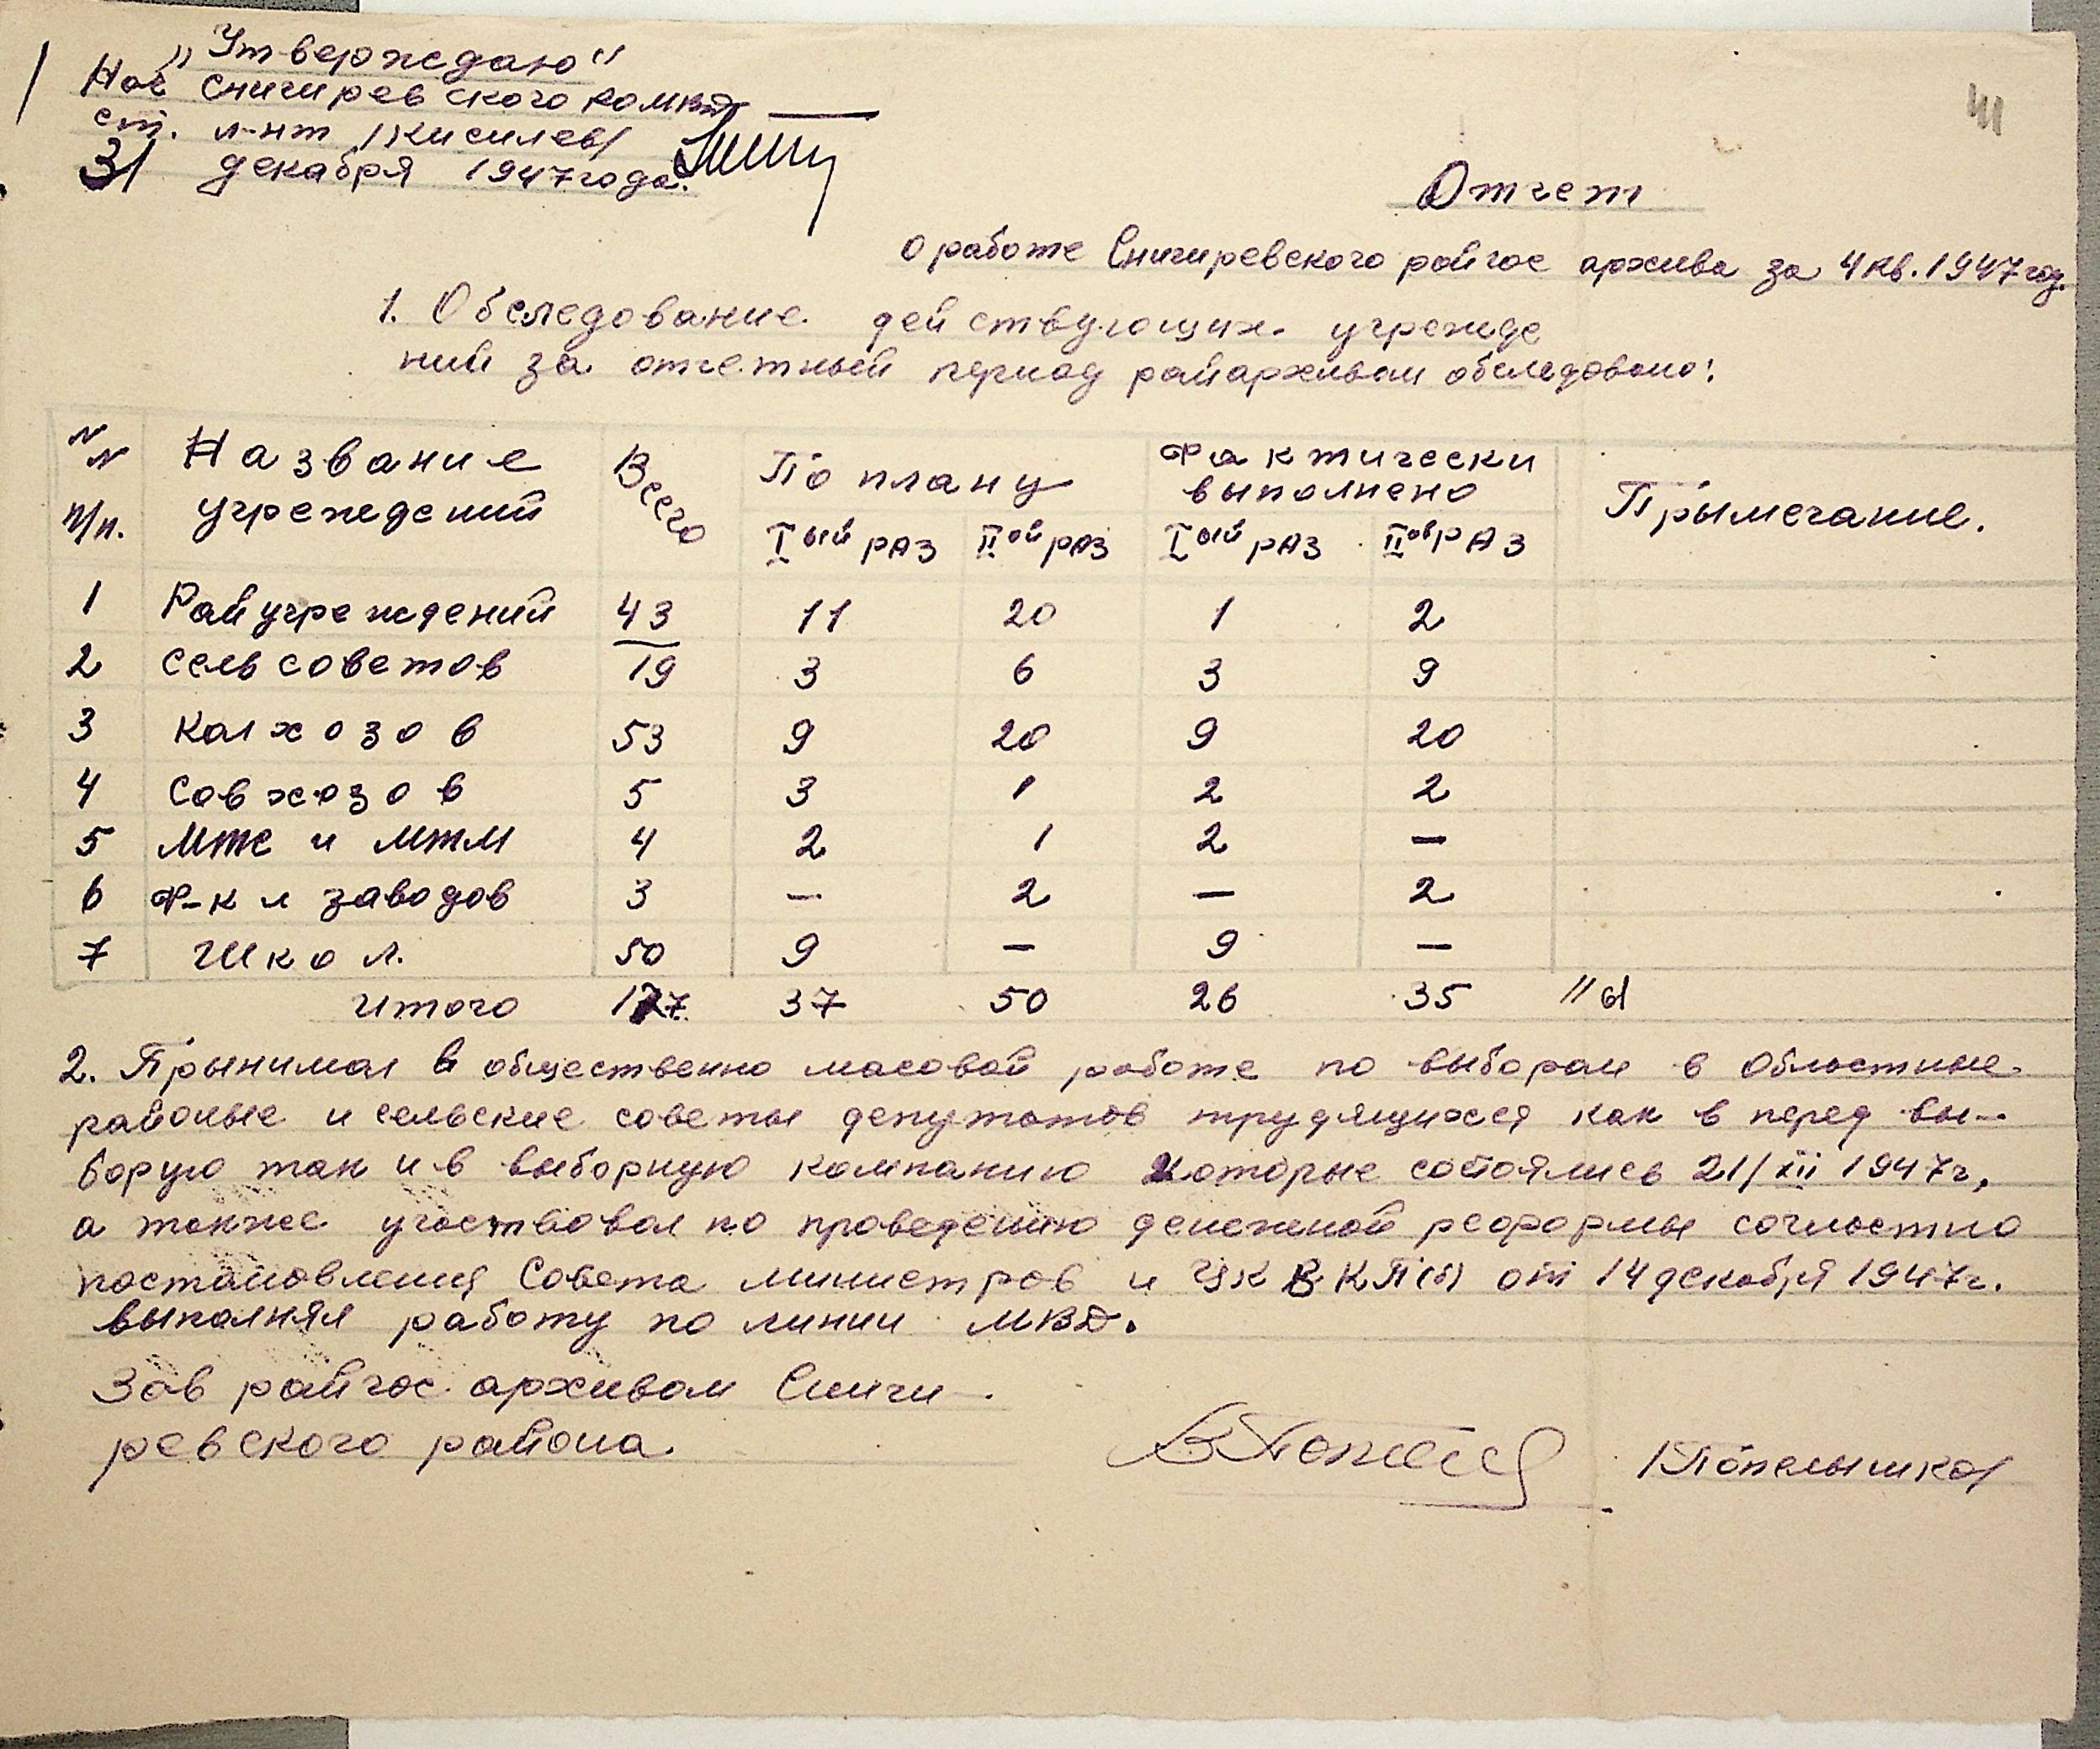 „Утверждаю"
Нач Снигиревского РОМВД
ст. л-нт /Кисилев/
31 декабря 1947 года.
Отчет
о работе Снигиревского райгос архива за 4 кв. 1947 год.
1. Обследование действующих учрежде
ний за отчетный период райархивом обследовано:
№№ п/п. Название учрежедений Всего По плану Фактически выполнено Прымечание.
Iый раз IIой раз Iый раз IIой раз
1 Райучреждений 43 11 20 1 2
2 сельсоветов 19 3 6 3 9
3 Колхозов 53 9 20 9 20
4 Совхозов 5 3 1 2 2
5 Мтс и мтм 4 2 1 2 —
6 Ф-к и заводов 3 — 2 — 2
7 Школ. 50 9 — 9 —
Итого 177 37 50 26 35 // 61
2. Прынимал в общественно масовой работе по выборам в Областные
районые и сельские советы депутатов трудящихся как в перед вы-
борую так и в выборную компанию которые состоялись 21/XII 1947г,
а также участвовал по проведению денежной реформы согластно
постановления Совета министров и ЦК ВКП(б) от 14 декабря 1947г.
выполнял работу по линии МВД.
Зав райгос. архивом Сниги-
ревского района.
/Попельышка/